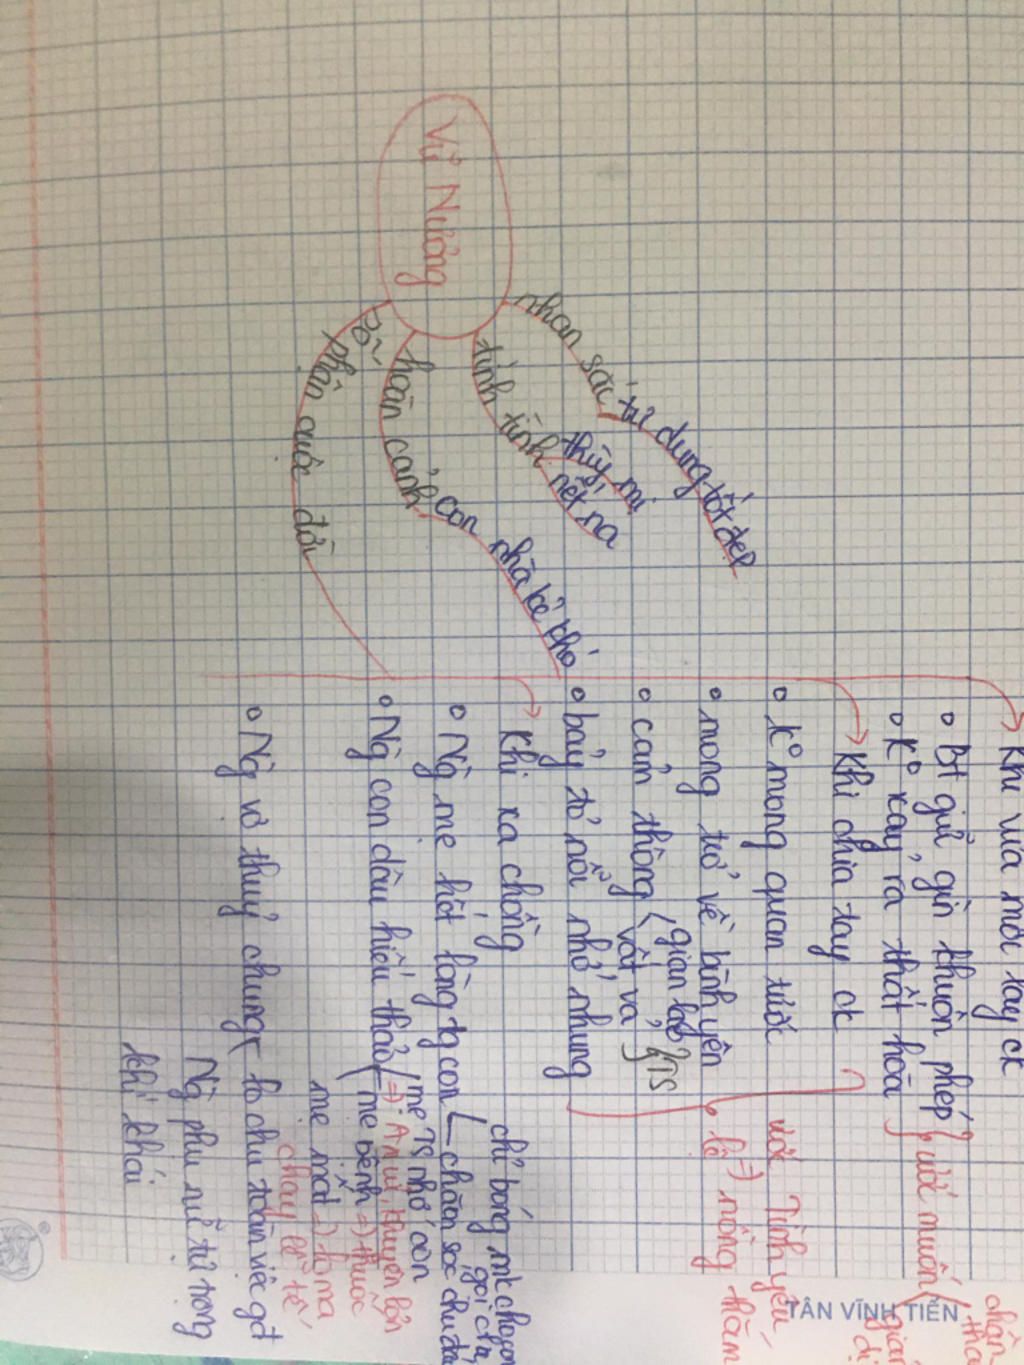 Vũ Nương
nhan sắc
tư dung tốt đẹp
tính tình
thùy mị
nết na
hoàn cảnh
con nhà kẻ khó
số phận cuộc đời
Khi vừa mới lấy ck
Bt giữ gìn khuôn phép
K° xảy ra thất hòa
ước muốn
chân
giản dị
Khi chia tay ck
K° mong quan tước
mong trở về bình yên
cảm thông
gian lao
vất vả
TS
bày tỏ nỗi nhớ nhung
ước
Tình yêu
nồng thắm
Khi xa chồng
Ng mẹ hết lòng vs con
chỉ bóng mk
gọi cha
chăm sóc chu đáo
Ng con dâu hiếu thảo
mẹ TS nhớ con
=> An ủi, khuyên bảo
mẹ bệnh => thuốc
mẹ mất => lo ma
chay tế lễ
Ng vợ thuỷ chung
lo chu toàn việc gđ
Ng phụ nữ tự trọng
khí khái
TÂN VĨNH TIẾN